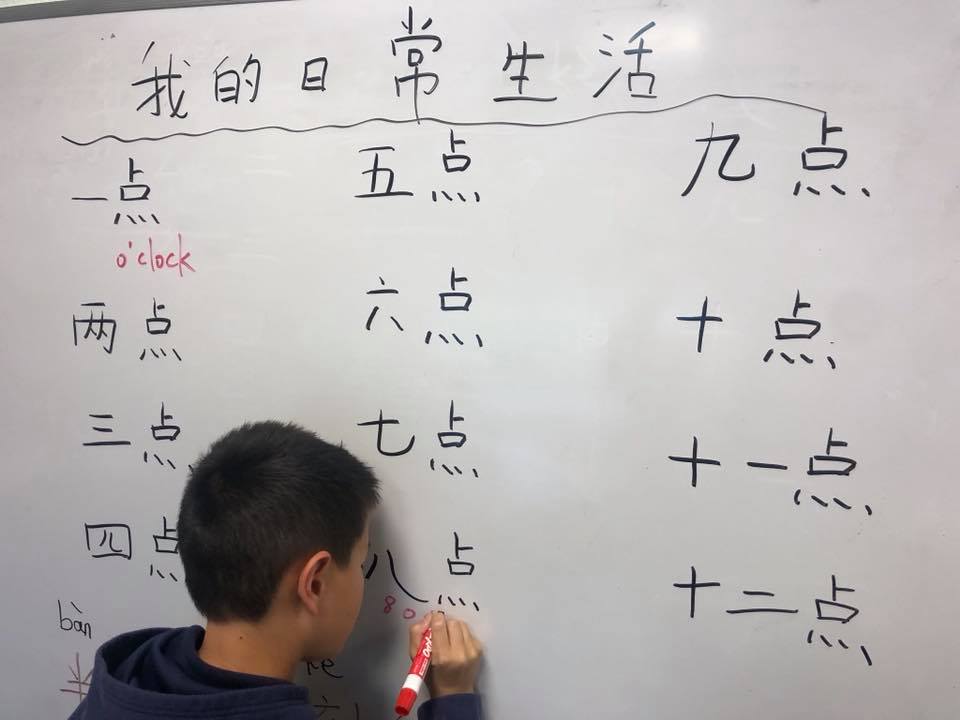 我的日常生活
一点
o'clock
两点
三点
四点
bàn
半
五点
六点
七点
八点
8 o
九点
十点
十一点
十二点